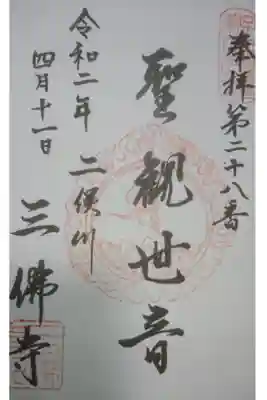 奉拝 第二十八番
聖観世音
二俣川
三佛寺
令和二年
四月十一日